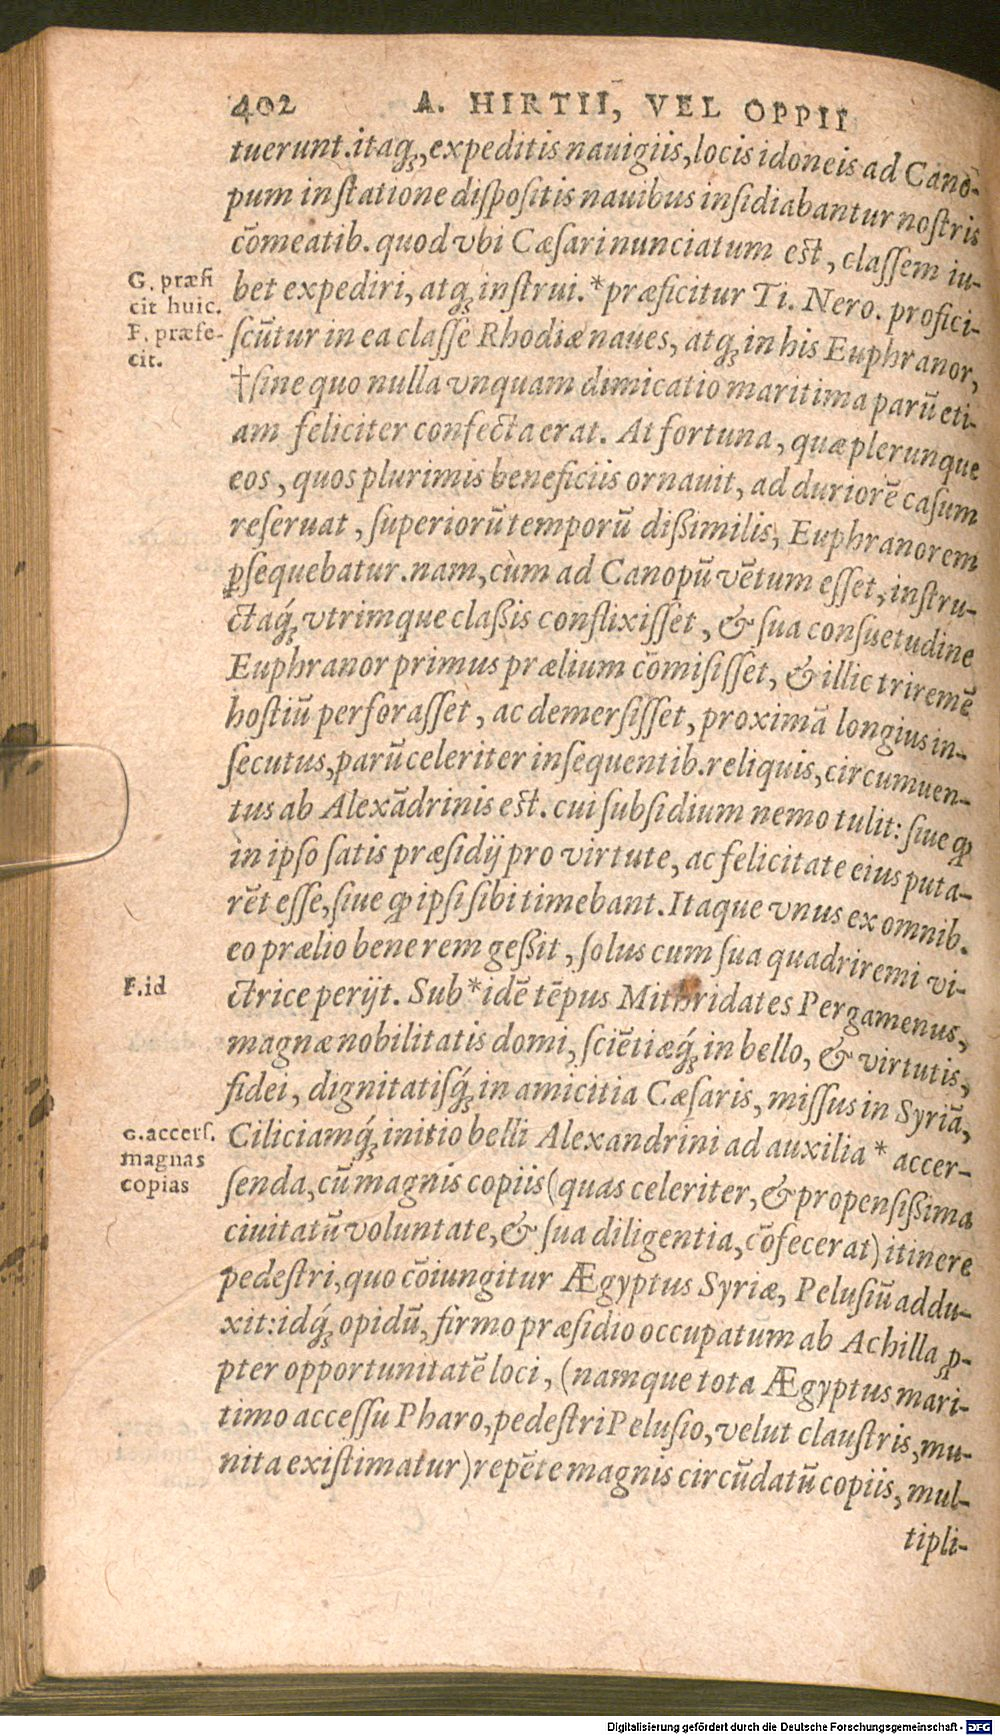 402 A. HIRTII, VEL OPPII
tuerunt. itaq́ꝫ, expeditis nauigiis, locis idoneis ad Cano-
pum in ſtatione diſpoſitis nauibus inſidiabantur noſtris
cōmeatib. quod vbi Cæſari nunciatum eſt, claſſem iu-
G. præfi
cit huic.
F. præfe-
cit.
bet expediri, atqꝫ inſtrui. *præficitur Ti. Nero. profici-
ſcūtur in ea claſſe Rhodiæ naues, atqꝫ in his Euphranor,
†ſine quo nulla vnquam dimicatio maritima parū eti-
am feliciter confecta erat. At fortuna, quæ plerunque
eos, quos plurimis beneficiis ornauit, ad duriorē caſum
reſeruat, ſuperiorū temporū dißimilis, Euphranorem
ꝑſequebatur. nam, cùm ad Canopū vētum eſſet, inſtru-
ctaq́ꝫ vtrimque claßis conflixiſſet, & ſua conſuetudine
Euphranor primus prælium cōmiſiſſet, & illic triremē
hoſtiū perforaſſet, ac demerſiſſet, proximā longius in-
ſecutus, parū celeriter inſequentib. reliquis, circumuen-
tus ab Alexādrinis eſt. cui ſubſidium nemo tulit: ſiue ꝙ
in ipſo ſatis præſidij pro virtute, ac felicitate eius puta-
rēt eſſe, ſiue ꝙ ipſi ſibi timebant. Itaque vnus ex omnib.
eo prælio bene rem geßit, ſolus cum ſua quadriremi vi-
F. id
ctrice perijt. Sub *idē tēpus Mithridates Pergamenus,
magnæ nobilitatis domi, ſciētiæq́ꝫ in bello, & virtutis,
fidei, dignitatiſq́ꝫ in amicitia Cæſaris, miſſus in Syriā,
G. accerſ.
magnas
copias
Ciliciamq́ꝫ initio belli Alexandrini ad auxilia * accer-
ſenda, cū magnis copiis (quas celeriter, & propenſißima
ciuitatū voluntate, & ſua diligentia, cōfecerat) itinere
pedeſtri, quo cōiungitur Ægyptus Syriæ, Peluſiū addu-
xit: idq́ꝫ opidū, firmo præſidio occupatum ab Achilla ꝓ-
pter opportunitatē loci, (namque tota Ægyptus mari-
timo acceſſu Pharo, pedeſtri Peluſio, velut clauſtris, mu-
nita exiſtimatur) repēte magnis circūdatū copiis, mul-
tipli-
Digitalisierung gefördert durch die Deutsche Forschungsgemeinschaft - DFG